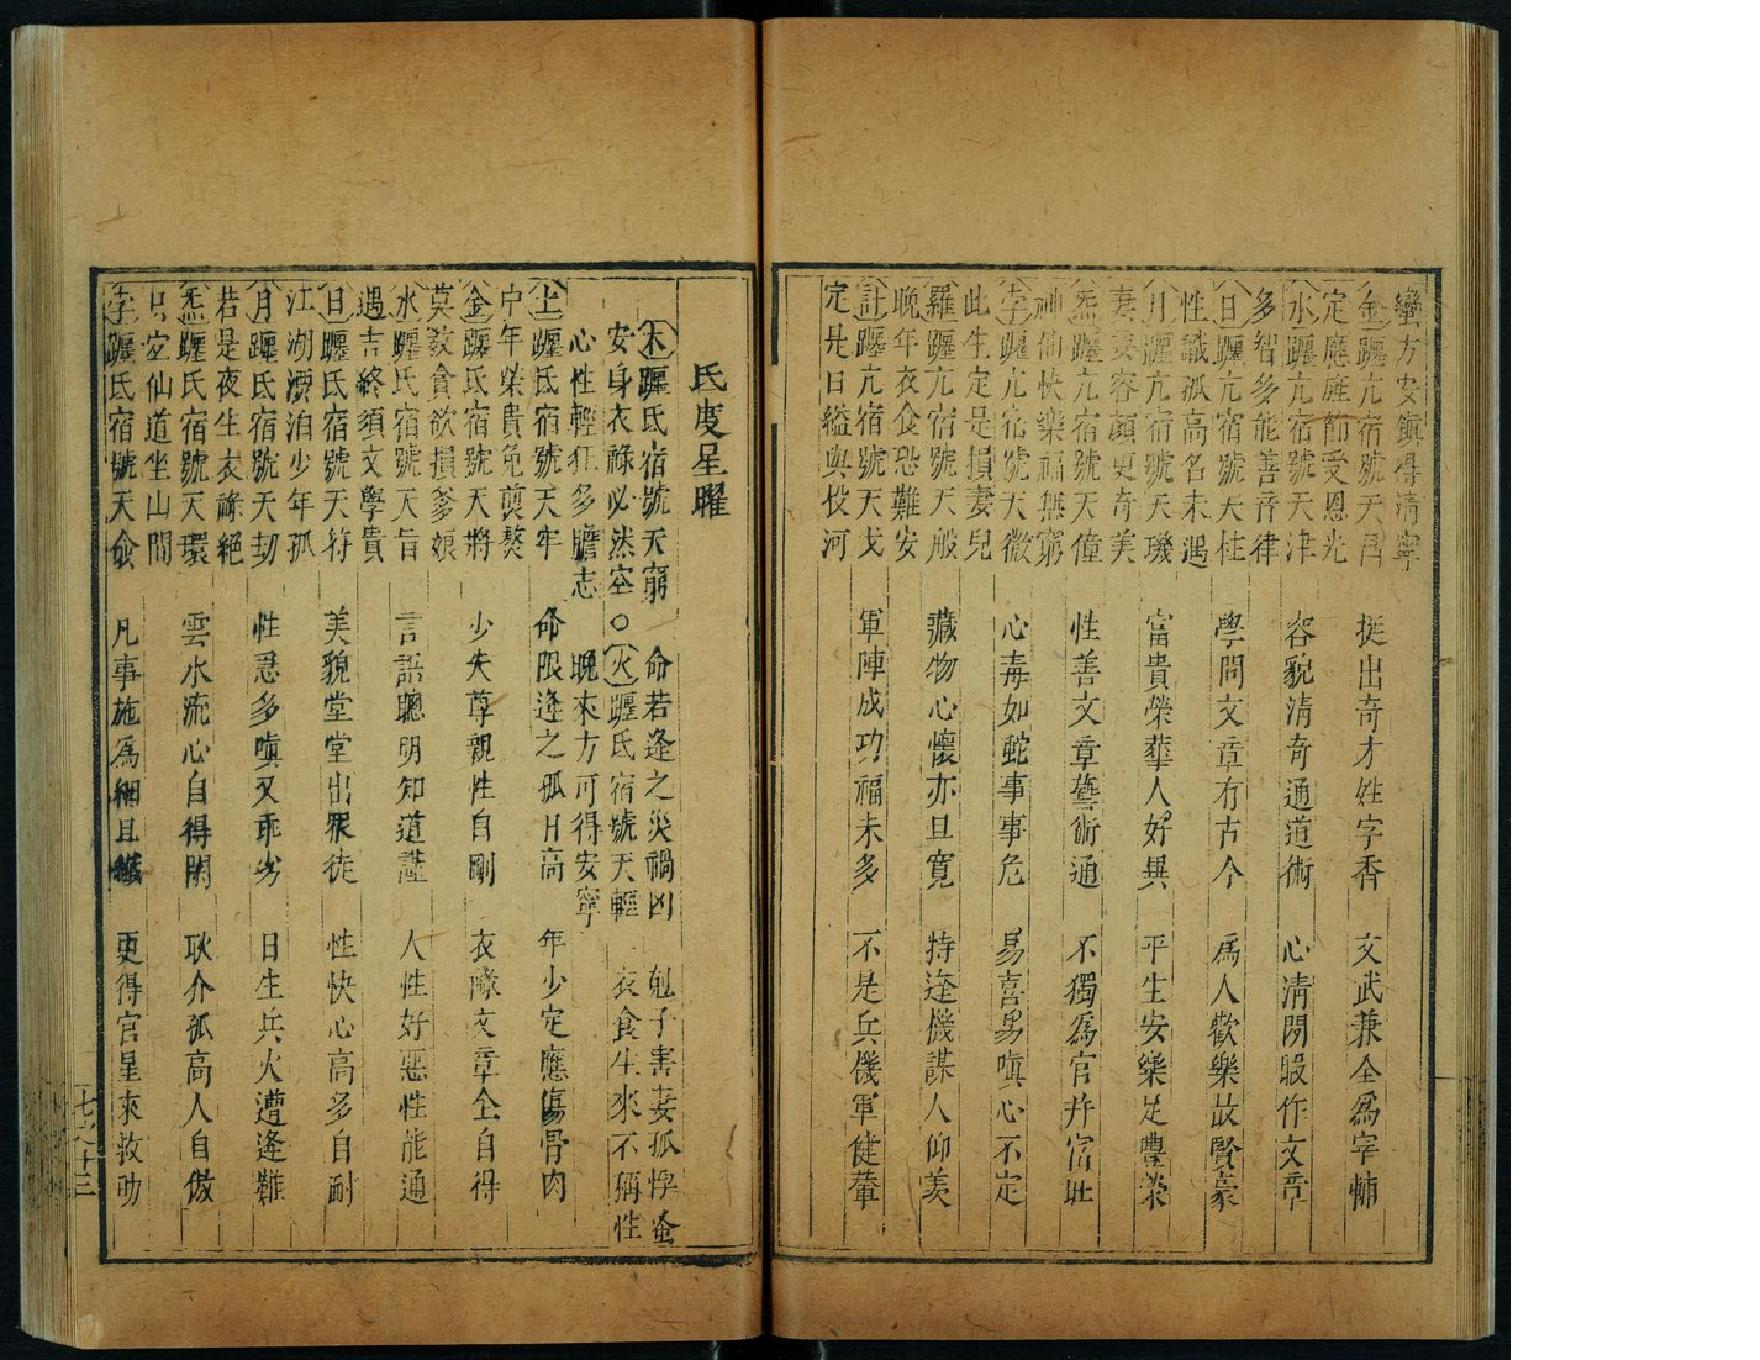 蠻方安鎮得清寧
金躔亢宿號天昌　挺出奇才姓字香　文武兼全為宰輔
定應旌節受恩光
水躔亢宿號天津　容貌清奇通道術　心清閒暇作文章
多智多能善音律
日躔亢宿號天柱　學問文章冇古今　為人歡樂故賢豪
性識孤高名未遇
月躔亢宿號天璣　富貴榮華人好異　平生安樂足豐榮
妻妾容顏更奇美
炁躔亢宿號天僮　性善文章藝術通　不獨為官并富壯
神仙快樂福無窮
孛躔亢宿號天微　心毒如蛇事事危　易喜易嗔心不定
此生定是損妻兒
羅躔亢宿號天般　藏物心懷亦且寬　特逢機謀人仰羨
晚年衣食恐難安
計躔亢宿號天戈　軍陣成功福未多　不是兵機軍健輩
定是日縊與投河
氐度星曜
木躔氐宿號天窮　命若逢之災禍凶　剋子害妻孤悖蚤
安身衣祿必然空○火躔氐宿號天輕　衣食生來不稱性
心性輕狂多膽志　晚來方可得安寧
土躔氐宿號天牢　命限逢之孤日高　年少定應傷骨肉
中年榮貴免煎熬
金躔氐宿號天將　少失尊親性自剛　衣祿文章全自得
莫教貪欲損爹娘
水躔氐宿號天旨　言語聰明知道謹　人性好惡性能通
遇吉終須文學貴
日躔氐宿號天符　美貌堂堂出眾徒　性快心高多自耐
江湖漂泊少年孤
月躔氐宿號天劫　性忌多嗔又乖劣　日生兵火遭逢難
若是夜生衣祿絕
炁躔氐宿號天環　雲水流心自得閑　耿介孤高人自傲
只宜仙道坐山間
孛躔氐宿號天僉　凡事施為細且纖　更得官星來救助
七之十三